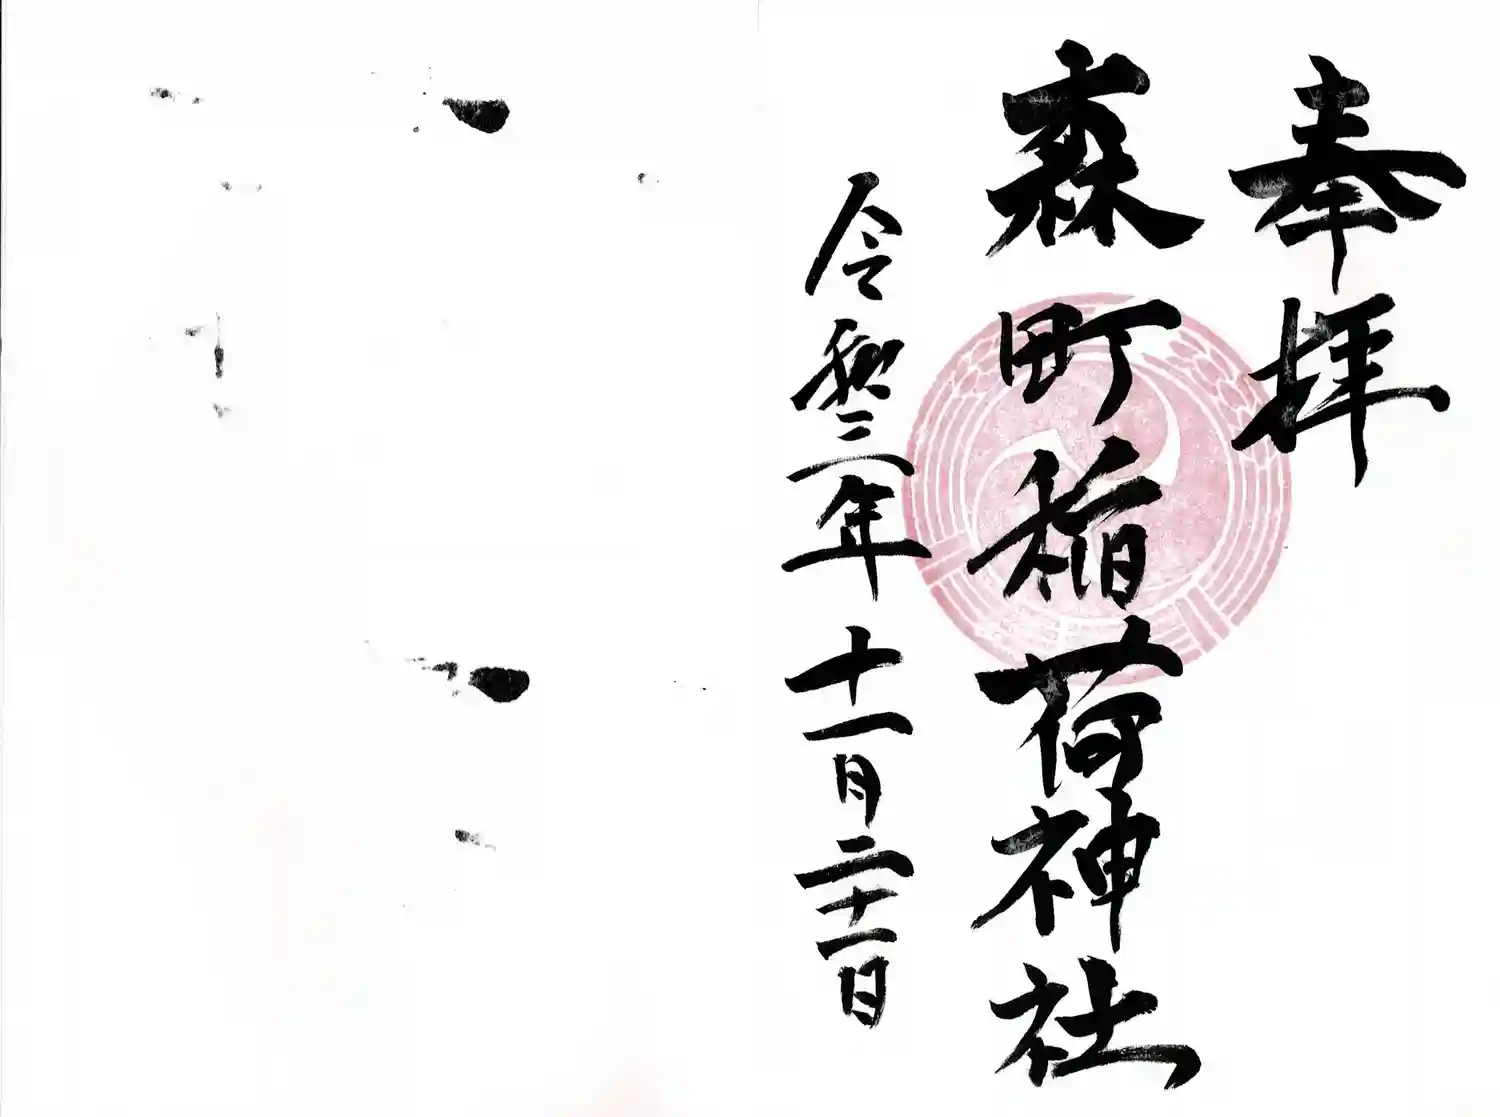 奉拝
森町稲荷神社
令和三年十一月二十一日